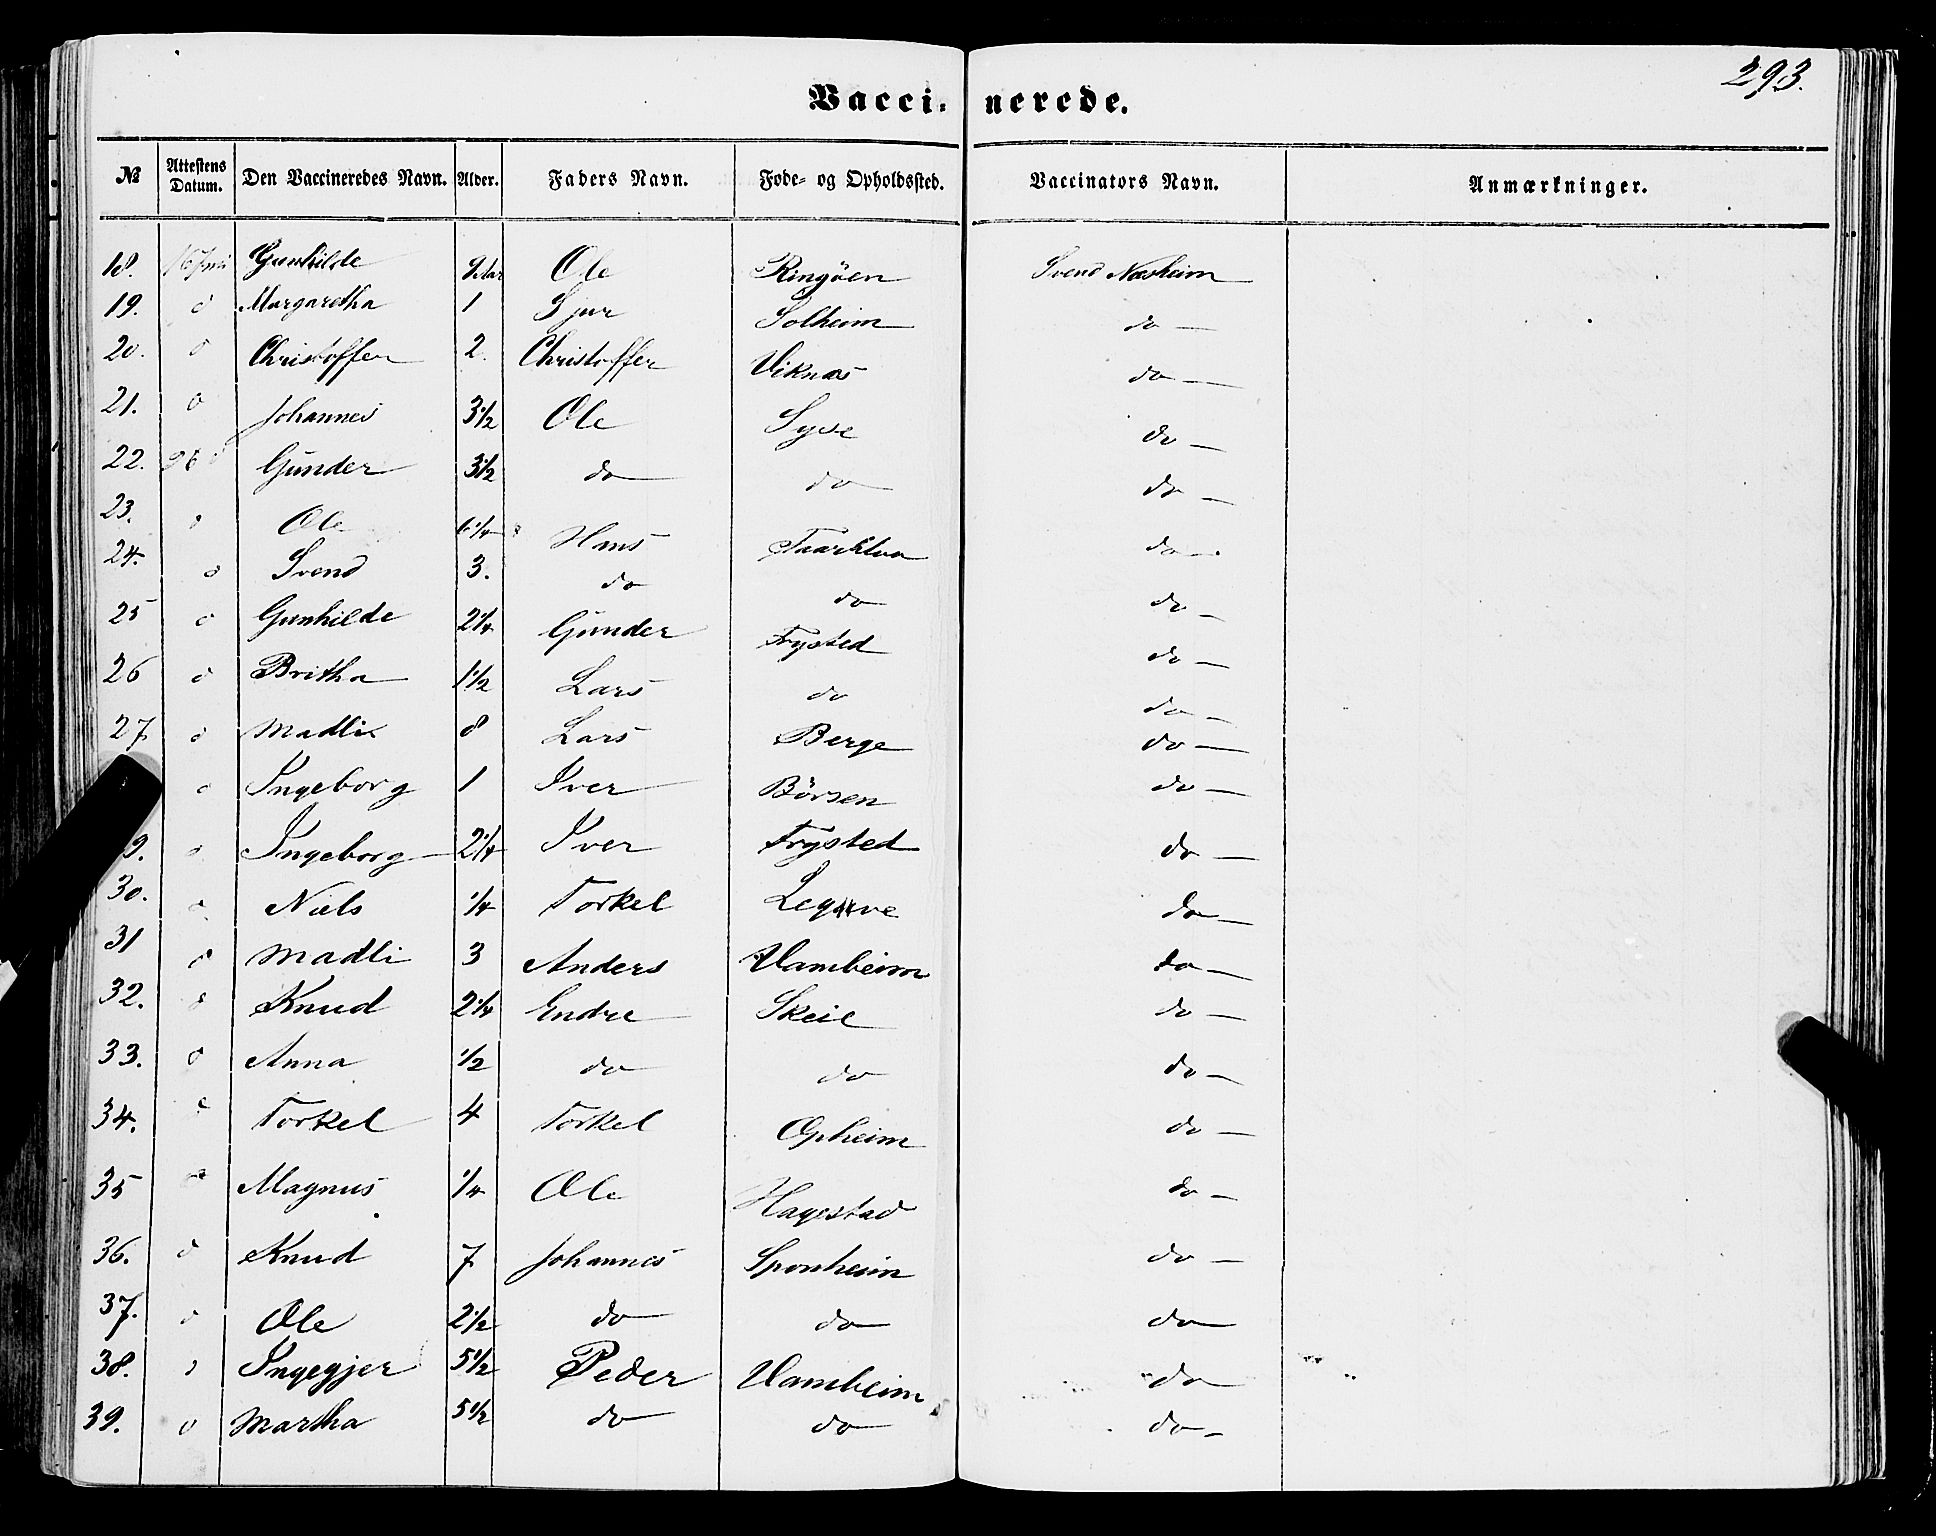 293.
Vacci- nerede.
№ Attestens Datum. Den Vaccineredes Navn. Alder. Faders Navn. Føde- og Opholdssted. Vaccinators Navn. Anmærkninger.
18. 16 Juni Gunhilde Ole Ringöen Svend Næsheim
19. d Margaretha 1 Sjur Solheim do —
20. d Christoffer 2. Christoffer Viknæs do —
21. d Johannes 3½ Ole Syse do —
22. 26 d Gunder 3½ do do do —
23. d Ole 6¼ Hans do —
24. d Svend 3. do do do —
25 d Gunhilde 2¼ Gunder Trysted do —
26 d Britha 1½ Lars do do —
27. d Madli 8 Lars Berge do —
d Ingeborg 1 Iver Börsen do —
9. d Ingeborg 2¼ Iver Trysted do —
30. d Niels ¼ Torkel do —
31 d Madli 3 Anders Vambeim do —
32. d Knud 2¼ Endre Skeie do —
33. d Anna ½ do do do —
34. d Torkel 4 Torkel Opheim do —
35 d Magnus ¼ Ole Hagestad do —
36. d Knud 7 Johannes Sponheim do —
37. d Ole 2½ do do do
38. d Ingegjer 5½ Peder Vambeim do
39. d Martha 5½ do do do -